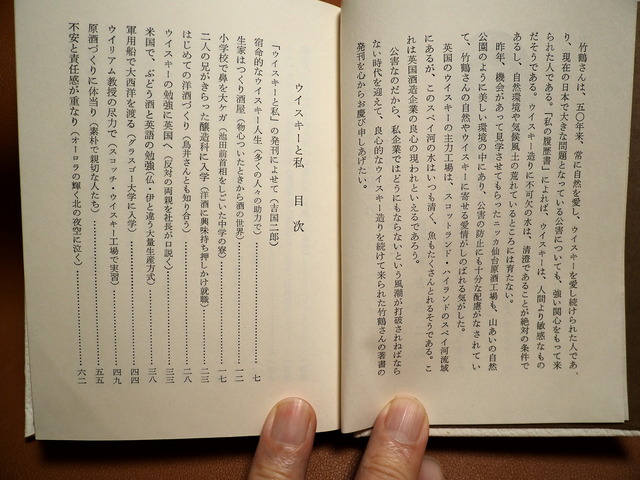 竹鶴さんは、五〇年来、常に自然を愛し、ウイスキーを愛し続けられた人であ
り、現在の日本で大きな問題となっている公害についても、強い関心をもって来
られた人である。「私の履歴書」によれば、ウイスキーは、人間より敏感なもの
だそうである。ウイスキー造りに不可欠の水は、清澄であることが絶対の条件で
あるし、自然環境や気候風土の荒れているところには育たない。
昨年、機会があって見学させてもらったニッカ仙台原酒工場も、山あいの自然
公園のように美しい環境の中にあり、公害の防止にも十分な配慮がなされてい
て、竹鶴さんの自然やウイスキーに寄せる愛情がしのばれる気がした。
英国のウイスキーの主力工場は、スコットランド・ハイランドのスペイ河流域
にあるが、このスペイ河の水はいつも清く、魚もたくさんとれるそうである。こ
れは英国酒造企業の良心の現われといえるであろう。
公害なのだから、私企業ではどうにもならないという風潮が打破されねばなら
ない時代を迎えて、良心的なウイスキー造りを続けて来られた竹鶴さんの著書の
発刊を心からお慶び申しあげたい。
ウイスキーと私 目次
「ウイスキーと私」の発刊によせて（吉国二郎）
宿命的なウイスキー人生（多くの人々の助力で）……七
生家はつくり酒屋（物心ついたときから酒の世界）……一二
小学校で鼻を大ケガ（池田前首相をしごいた中学の寮）……一七
二人の兄がきらった醸造科に入学（洋酒に興味持ち押しかけ就職）……二三
はじめての洋酒づくり（鳥井さんとも知り合う）……二八
ウイスキーの勉強に英国へ（反対の両親を社長が口説く）……三三
米国で、ぶどう酒と英語の勉強（仏・伊と違う大量生産方式）……三八
軍用船で大西洋を渡る（グラスゴー大学に入学）……四四
ウイリアム教授の尽力で（スコッチ・ウイスキー工場で実習）……四九
原酒づくりに体当り（素朴で親切な人たち）……五五
不安と責任感が重なり（オーロラの輝く北の夜空に泣く）……六二